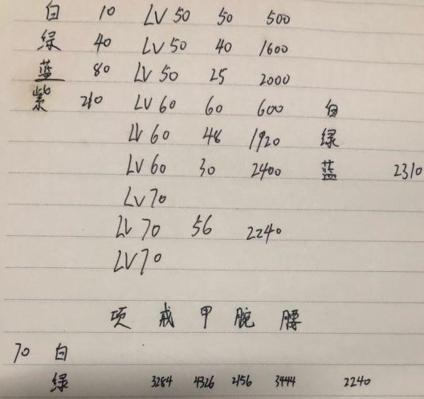 白 10 LV50 50 500
绿 40 LV50 40 1600
蓝 80 LV50 25 2000
紫 210 LV60 60 600 白
LV60 48 1920 绿
LV60 30 2400 蓝 2310
LV70
LV70 56 2240
LV70
项 戒 甲 腕 腰
70 白
绿 3284 4326 2156 3444 2240